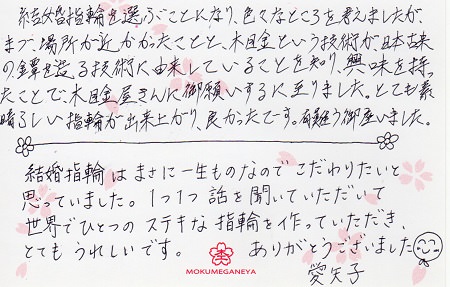 結婚指輪を選ぶことになり、色々なところを考えましたが、
まず、場所が近かかったことと、木目金という技術が、日本古来
の鐔を造る技術に由来していることを知り、興味を持っ
たことで、木目金屋さんに御願いするに至りました。とても素
晴らしい指輪が出来上がり、良かったです。有難う御座いました。
結婚指輪はまさに一生ものなのでこだわりたいと
思っていました。1つ1つ話を聞いていただいて
世界でひとつのステキな指輪を作っていただき、
とてもうれしいです。ありがとうございました
MOKUMEGANEYA
愛矢子